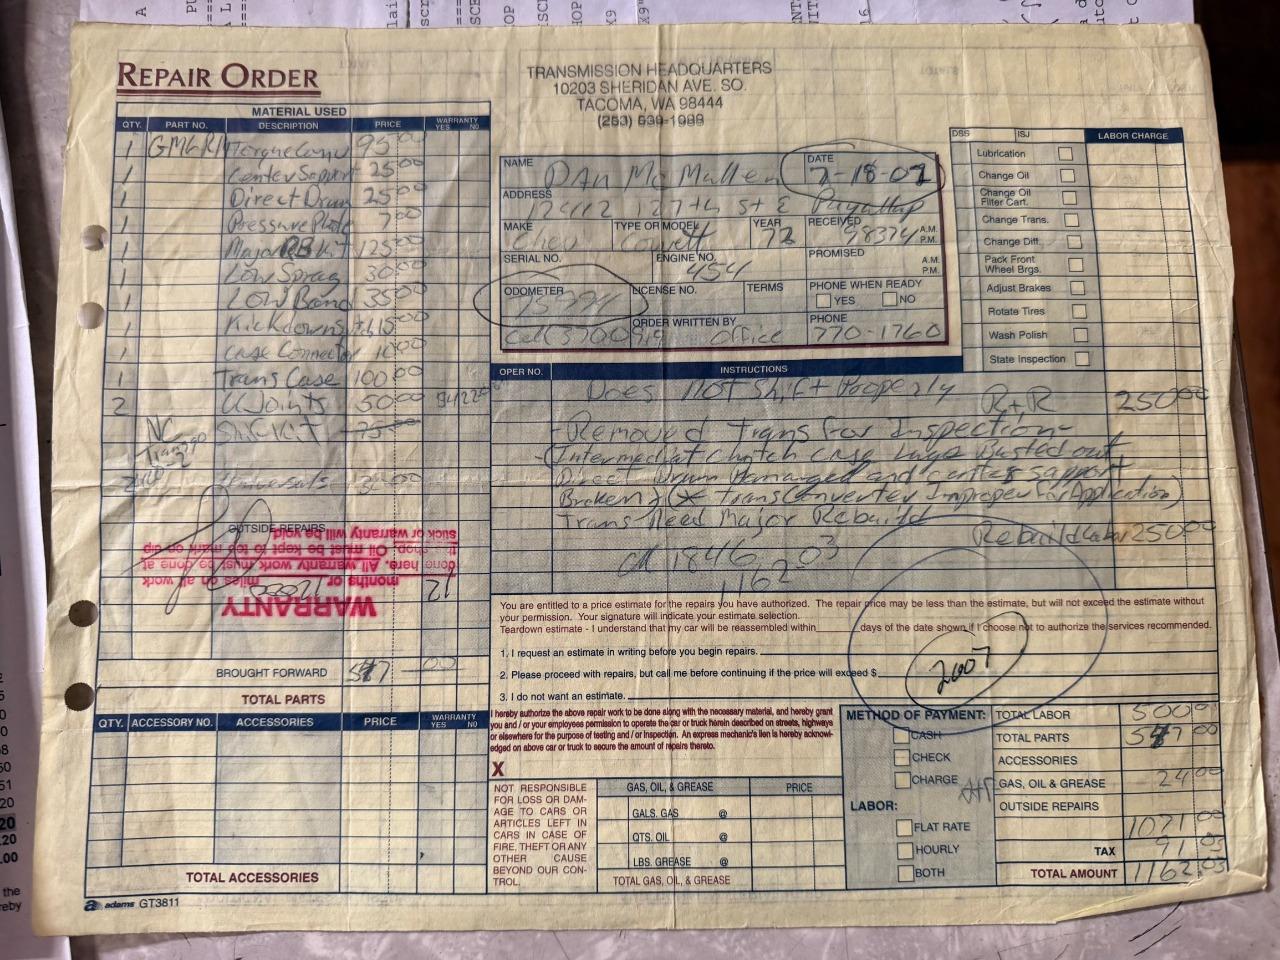 REPAIR ORDER
TRANSMISSION HEADQUARTERS
10203 SHERIDAN AVE. SO.
TACOMA, WA 98444
(253) 539-1988
MATERIAL USED
QTY. PART NO. DESCRIPTION PRICE WARRANTY YES NO
1 Torque Conv 95 00
1 Center Support 25 00
1 Direct Drum 25 00
1 Pressure Plate 7 00
1 Major RB Kit 125 00
1 Low Sprag 30 00
1 Low Band 35 00
1 15 00
1 Case Connector 10 00
1 Trans Case 100 00
2 U Joints 50 00
NC
OUTSIDE REPAIRS
WARRANTY
12 months or 12000 miles on all work
done here. All warranty work must be done at
shop. Oil must be kept to top mark on dip
stick or warranty will be void.
BROUGHT FORWARD 547 00
TOTAL PARTS
QTY. ACCESSORY NO. ACCESSORIES PRICE WARRANTY YES NO
TOTAL ACCESSORIES
adams GT3811
NAME Dan McMullen
DATE 7-18-07
ADDRESS 12412 127th St E Puyallup
MAKE Chev
TYPE OR MODEL
YEAR 72
RECEIVED 98374 A.M. P.M.
SERIAL NO.
ENGINE NO. 454
PROMISED A.M. P.M.
ODOMETER
LICENSE NO.
TERMS
PHONE WHEN READY
YES NO
Cell 370 0919
ORDER WRITTEN BY Office
PHONE 770-1760
DSS ISJ LABOR CHARGE
Lubrication
Change Oil
Change Oil Filter Cart.
Change Trans.
Change Diff.
Pack Front Wheel Brgs.
Adjust Brakes
Rotate Tires
Wash Polish
State Inspection
OPER NO. INSTRUCTIONS
Does Not Shift Properly
R+R 250 00
- Removed Trans for Inspection -
- (Intermediat Clutch case Lugs Busted out
Direct Drum Damanged and center support
Broken) (* Trans Converter Improper for Application)
Trans Need Major Rebuild
Rebuild Labor 250 00
1162 03
You are entitled to a price estimate for the repairs you have authorized. The repair price may be less than the estimate, but will not exceed the estimate without
your permission. Your signature will indicate your estimate selection.
Teardown estimate - I understand that my car will be reassembled within ______ days of the date shown if I choose not to authorize the services recommended.
1. I request an estimate in writing before you begin repairs.
2. Please proceed with repairs, but call me before continuing if the price will exceed $
2007
3. I do not want an estimate.
I hereby authorize the above repair work to be done along with the necessary material, and hereby grant
you and / or your employees permission to operate the car or truck herein described on streets, highways
or elsewhere for the purpose of testing and / or inspection. An express mechanic's lien is hereby acknowl-
edged on above car or truck to secure the amount of repairs thereto.
X
NOT RESPONSIBLE
FOR LOSS OR DAM-
AGE TO CARS OR
ARTICLES LEFT IN
CARS IN CASE OF
FIRE, THEFT OR ANY
OTHER CAUSE
BEYOND OUR CON-
TROL.
GAS, OIL, & GREASE PRICE
GALS. GAS @
QTS. OIL @
LBS. GREASE @
TOTAL GAS, OIL, & GREASE
METHOD OF PAYMENT:
CASH
CHECK
CHARGE
LABOR:
FLAT RATE
HOURLY
BOTH
TOTAL LABOR 500 0
TOTAL PARTS 547 00
ACCESSORIES
GAS, OIL & GREASE 24 00
OUTSIDE REPAIRS
1071 00
TAX 91 03
TOTAL AMOUNT 1162 03